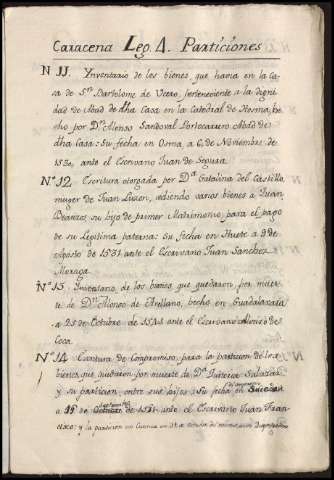 Caracena Leg. 4. Particiones
N. 11. Ynventario de los bienes que havia en la Ca-
sa de Sn. Bartolome de Ucero, perteneciente a la digni-
dad de Abad de dha Casa en la Catedral de Hosma, he-
cho por Dn. Alonso Sandoval Portocarrero Abad de
dha casa: Su fecha en Osma a 6 de Noviembre de
ante el Escrivano Juan de Segura.
N.o 12. Escritura otorgada por Da. Catalina del Castillo,
muger de Juan Luzon, cediendo varios bienes a Juan
su hijo de primer Matrimonio, para el pago
de su Legitima paterna: Su fecha en Huete a 9 de
Agosto de 1531 ante el Escrivano Juan Sanchez
N.o 13. Inventario de los bienes que quedaron por muer-
te de Dn. Alonso de Arellano, hecho en Guadalaxara
a 25 de Octubre de ante el Escrivano Alonso de
Coca.
N.o 14. Escritura de Compromiso para la particion de los
bienes que quedaron por muerte de Da. Salazar
y su particion entre sus hijos: Su fecha en
a 19 de Octubre de 1571 ante el Escrivano Juan Fran-
cisco; y la particion en Cuenca